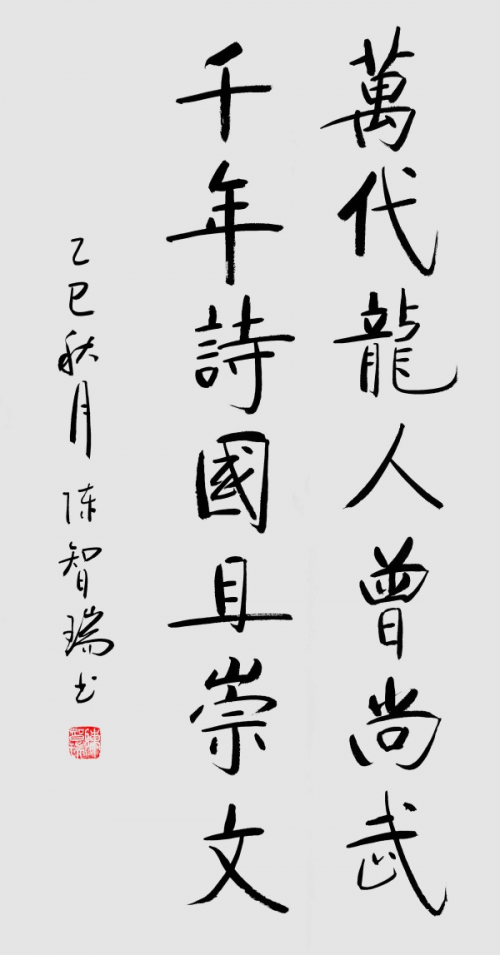 萬代龍人曾尚武
千年詩國且崇文
乙巳秋月 陈智瑞书